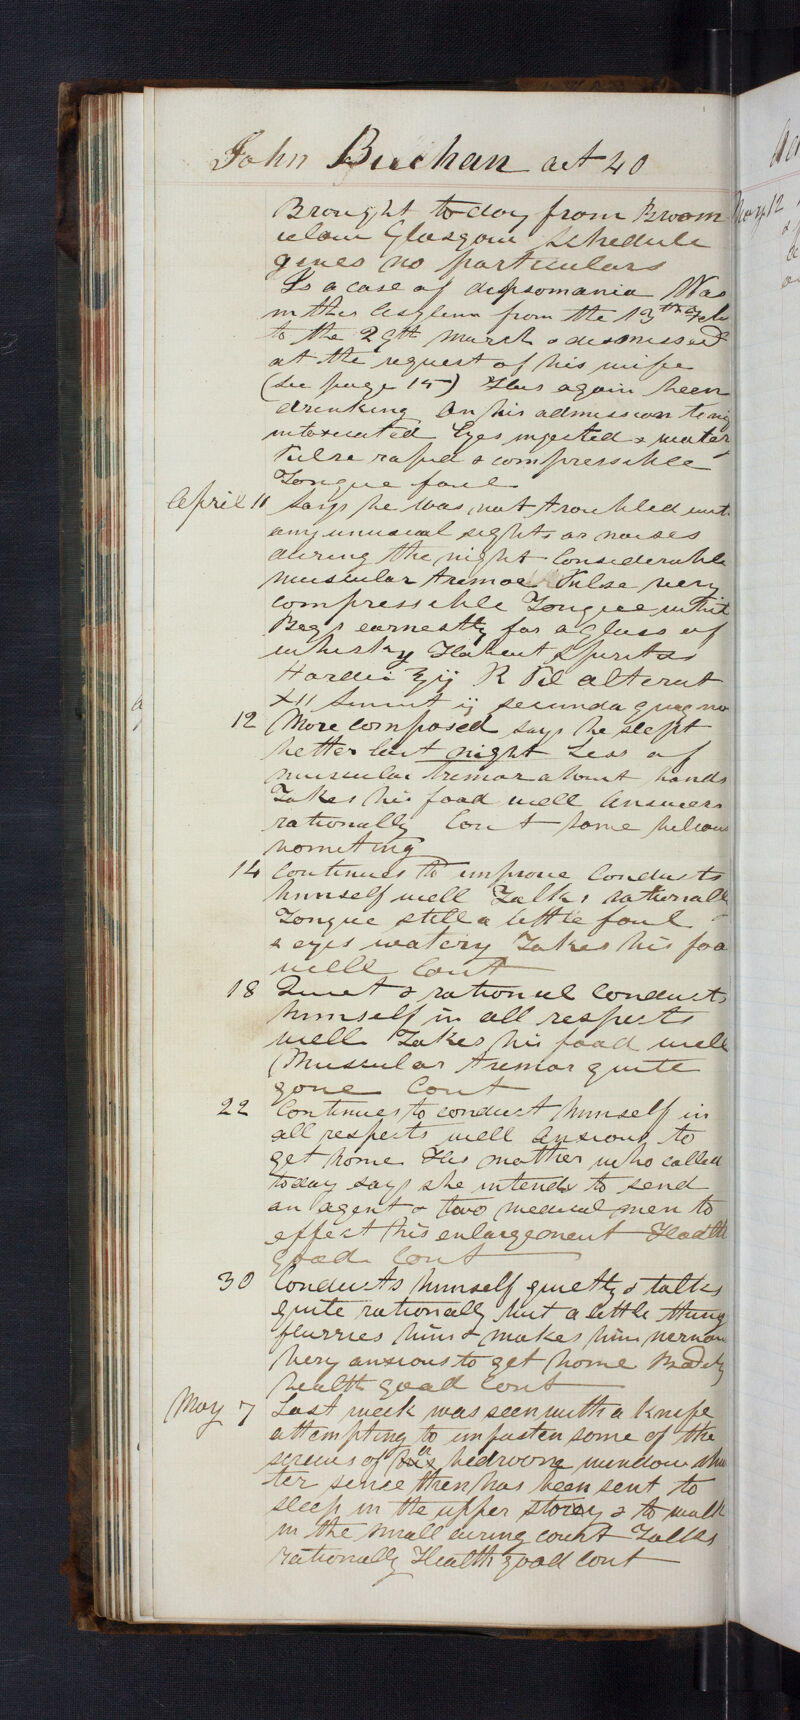 John Buchan aet 40
Brought to day from Broom
ielaw Glasgow Schedule
gives no particulars
Is a case of dipsomania Was
in this Asylum from the 13th Feb
to the 29th March & dismissed
at the request of his wife
(see page 15) Has again been
drinking On his admission to day
intoxicated Eyes injected & watery
Pulse rapid & compressible
Tongue foul
April 11 Says he was not troubled with
any unusual sights or noises
during the night Considerable
muscular tremor Pulse very
compressible Tongue white
Begs earnestly for a glass of
whisky Habeat Spiritus
Hordei ʒij R Pil alterat
XII Sumat ij secunda quaq
12 More composed says he slept
better last night Less of
muscular tremor about hands
Takes his food well Answers
rationally Cont some bilious
vomiting
14 Continues to improve Conducts
himself well Talks rationally
Tongue still a little foul
& eyes watery Takes his foo
well Cont
18 Quiet & rational Conducts
himself in all respects
well Takes his food well
Muscular tremor quite
gone Cont
22 Continues to conduct himself in
all respects well Anxious to
get home His mother who called
today says she intends to send
an agent & two medical men to
effect his enlargement Health
good Cont
30 Conducts himself quietly & talks
quite rationally but a little thing
flurries him & makes him nervous
Very anxious to get home Bodily
health good Cont
May 7 Last week was seen with a knife
attempting to unfasten some of the
screws of a bedroom window shu
ter since then has been sent to
sleep in the upper storey & to walk
in the small airing court Talks
rationally Health good Cont
May 12